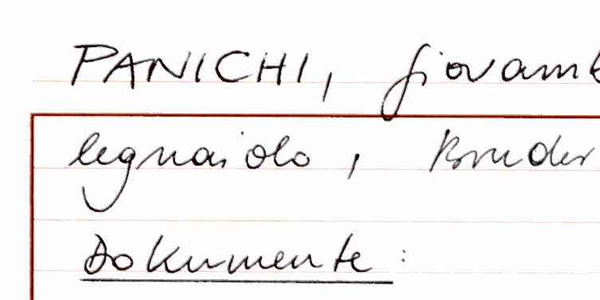 PANICHI, Giovamb
legnaiolo, Bruder
Dokumente: